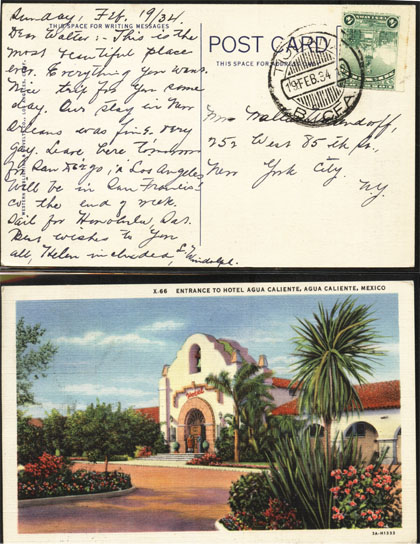 Sunday, Feb. 19/34.
THIS SPACE FOR WRITING MESSAGES
Dear Walter:- This is the
most beautiful place
ever. Everything you want.
Nice trip for you some
day. Our stay in New
Orleans was fine. Very
Gay. Leave here tomorrow
for San Diego, & Los Angeles
Will be in San Francis-
co the end of week.
Sail for Honolulu Sat.
Best wishes to You
all, Helen included,
POST CARD
THIS SPACE FOR ADDRESS
19 FEB. 34
B. CFA
Walter
252 West 85th St.,
New York City.
N.Y.
X-66 ENTRANCE TO HOTEL AGUA CALIENTE, AGUA CALIENTE, MEXICO
3A-H1332